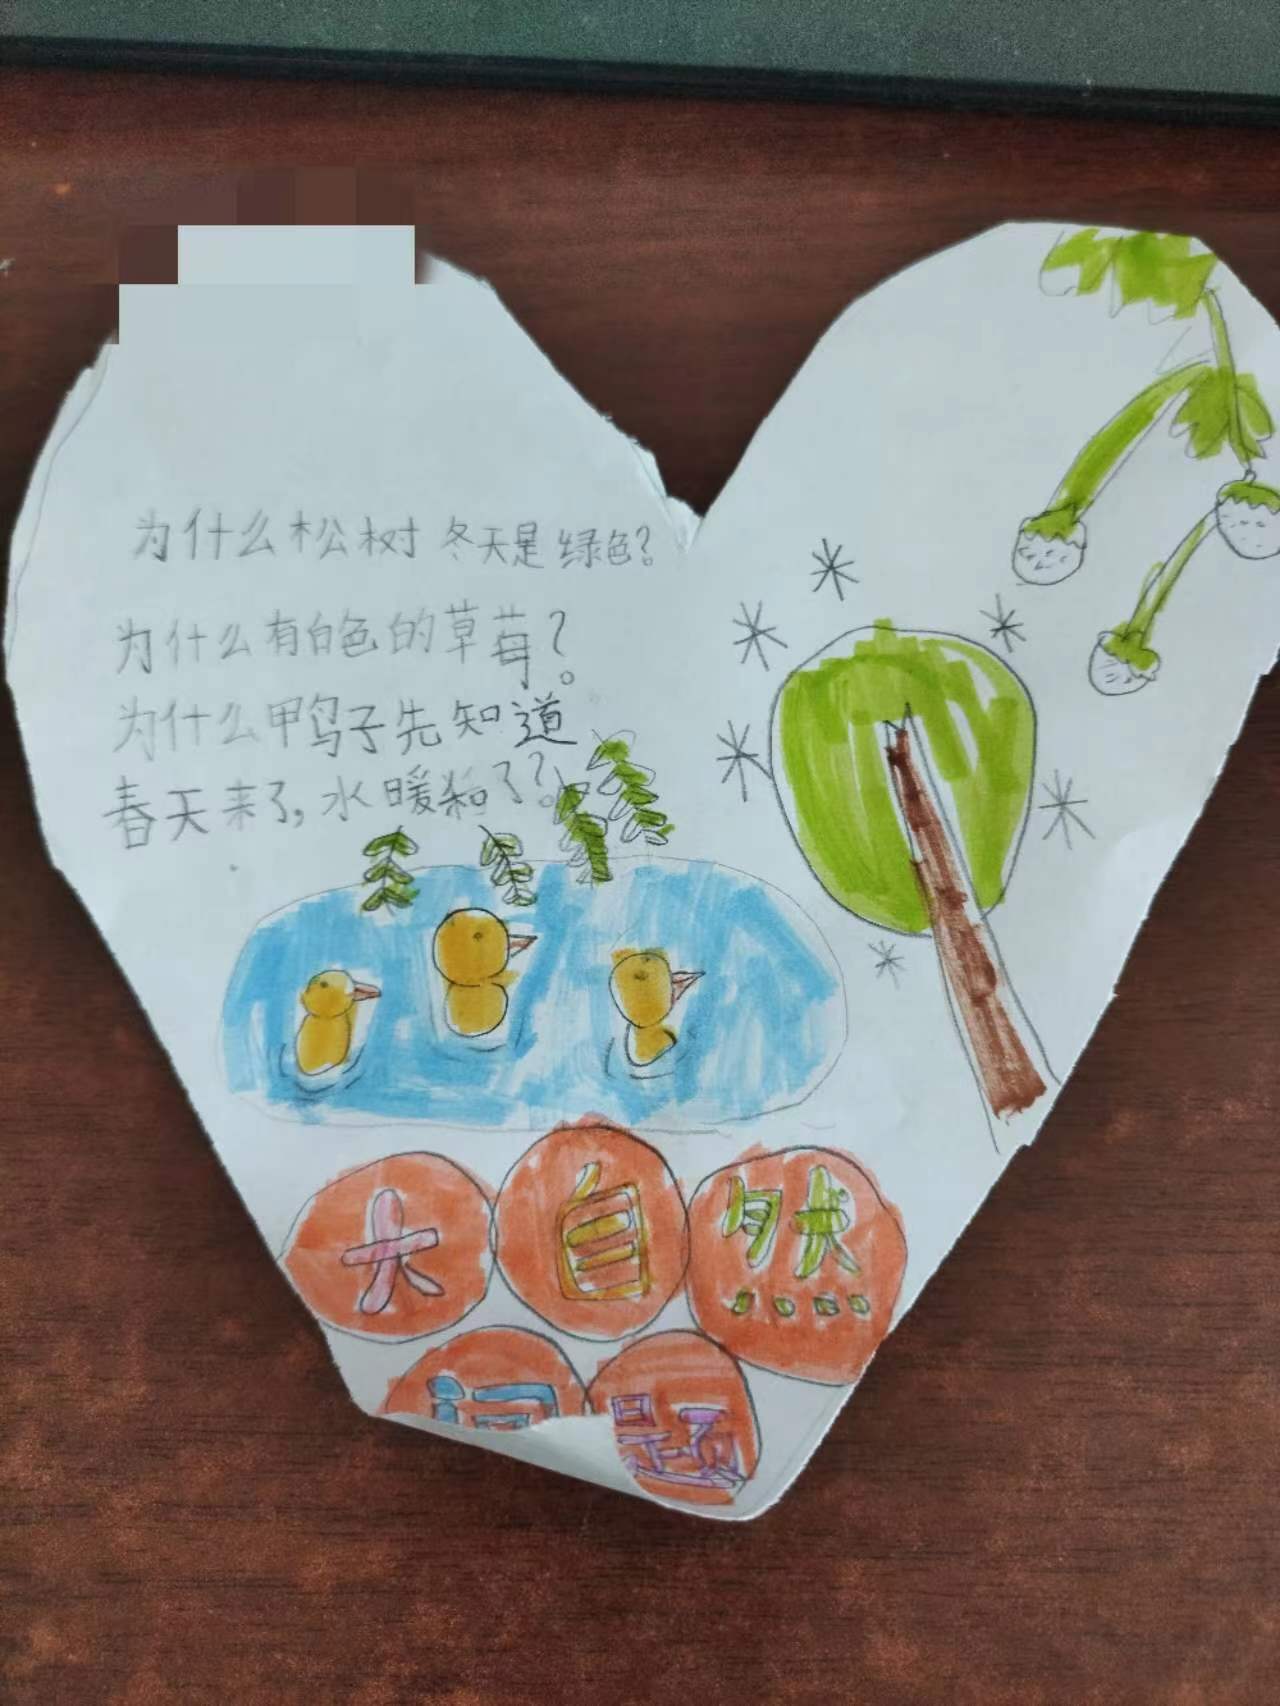 为什么松树冬天是绿色?
为什么有白色的草莓?。
为什么鸭子先知道
春天来了,水暖和了?
大自然
问题